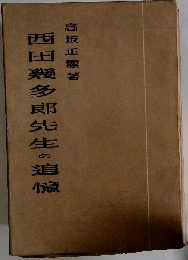 高坂正顯著
西田幾多郎先生の追憶